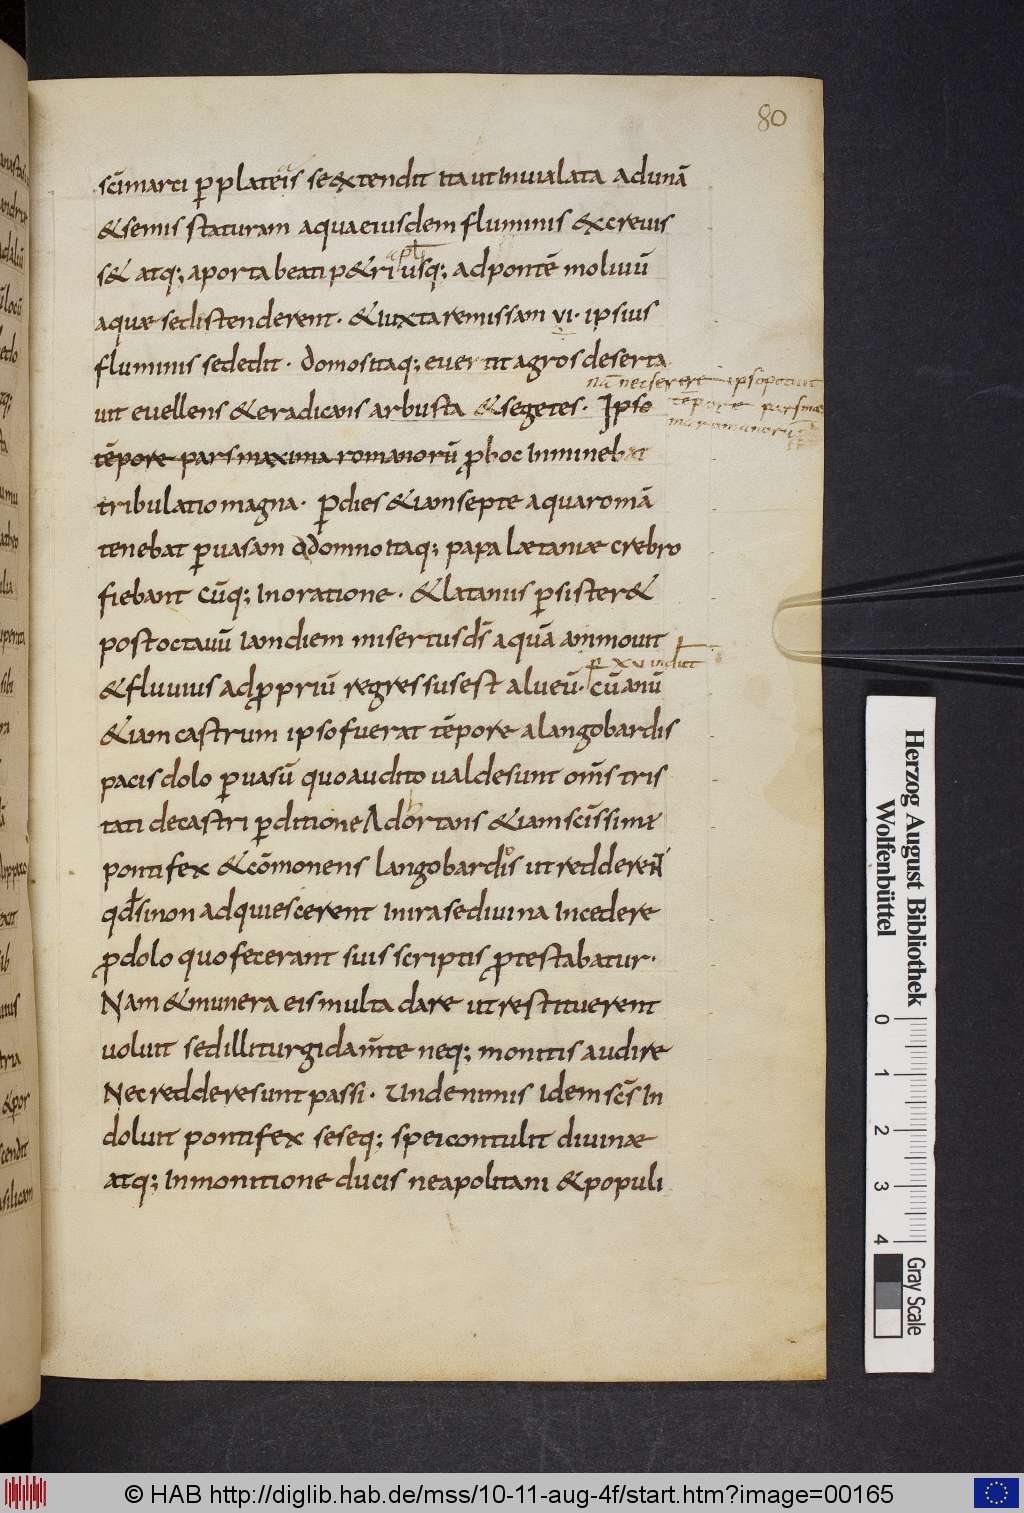 80
scīmarci ꝑ plateas se&xtendit ita ut Inuialata ad unā
&semis staturam aqua eiusdem fluminis &xcreuis
s& atq; aporta beati p&ri apl usq; ad pontē moluiū
aquæ se distenderent · & iuxta remissam vi · ipsius
fluminis sededit · domos itaq; euertit agros deserta
nā nec serere ipso potuit
uit euellens & eradicans arbusta & segetes · Ipso
tēpore pars ma
tēpore pars maxima romanorū ꝓhoc Inminebat
tribulatio magna · Ꝑ dies & iam septē aqua romā
tenebat ꝑuasam a domno itaq; papa lætaniæ crebro
fiebant cūq; In oratione · & latanis ꝑsister&
post octauū iam diem misertus ds̄ aquā ammouit
& fluuius ad ꝓpriū regressus est alueū · cū anū
ꝑ xv indict
& iam castrum ipso fuerat tēpore alangobardis
pacis dolo ꝑuasū quo audito ualde sunt om̄s tris
tati de castri ꝑditione Adhortans & iam scīssimæ
pontifex & cōmonens langobardos ut redderent
qd̄ si non adquiescerent In ira se diuina Incedere
ꝓ dolo quo fecerant suis scriptis ꝓtestabatur ·
Nam & munera eis multa dare ut restituerent
uoluit sed illi turgida m̄te neq; monitis audire
Nec reddere sunt passi · Unde nimis Idem scs̄ In
doluit pontifex seseq; spei contulit diuinæ
atq; In monitione ducis neapolitani & populi
Herzog August Bibliothek
Wolfenbüttel
0 1 2 3 4
Gray Scale
© HAB http://diglib.hab.de/mss/10-11-aug-4f/start.htm?image=00165